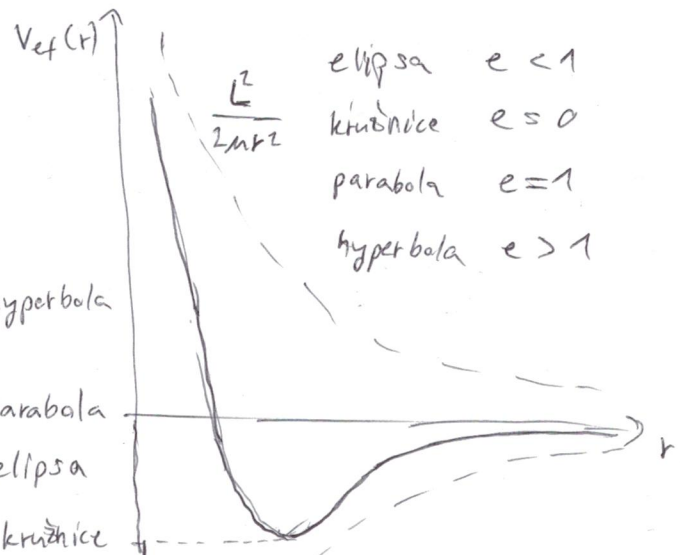 V_ef(r)
elipsa e < 1
L²/2μr²
kružnice e = 0
parabola e = 1
hyperbola e > 1
yperbola
arabola
r
elipsa
kružnice